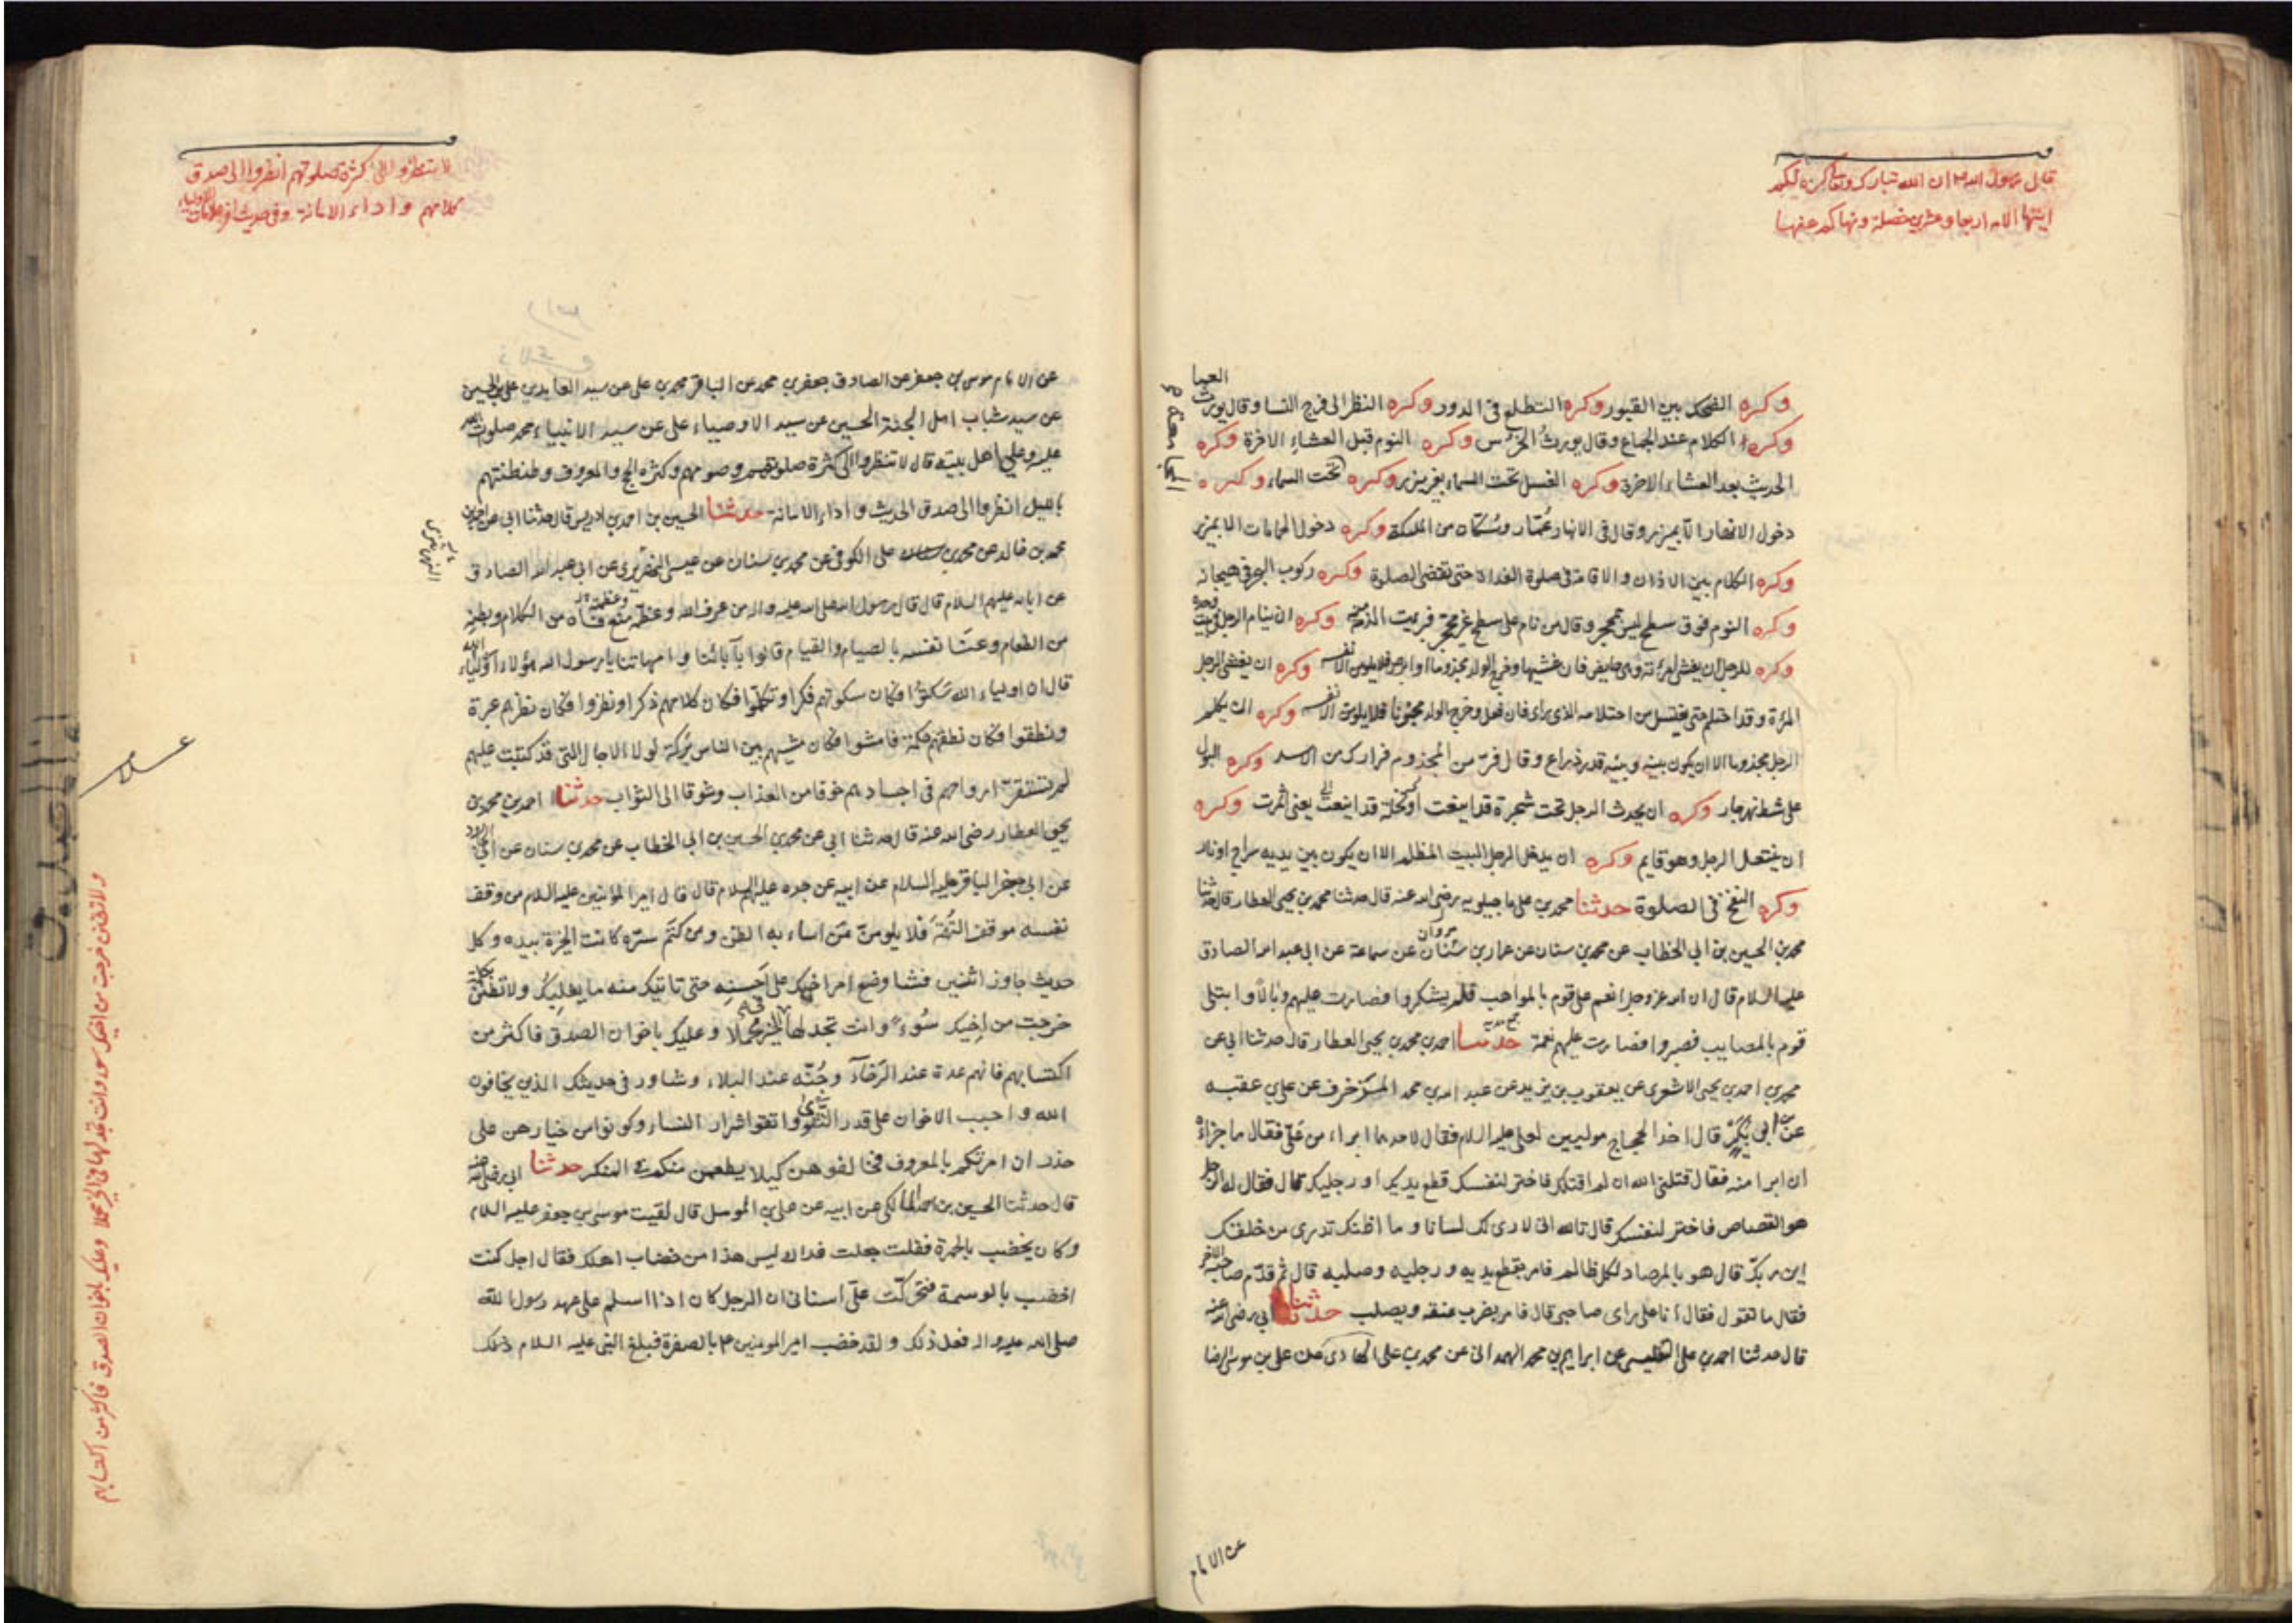 قال رسول الله ان الله تبارك وتعالى كره لكم
ايتها الامة اربعا وعشرين خصلة ونهاكم عنها
العما
وكره الضحك بين القبور وكره التطلع في الدور وكره النظر الى فرج النسا وقال يورث
وكره الكلام عند الجماع وقال يورث الخرس وكره النوم قبل العشاء الاخرة وكره
الحديث بعد العشاء الاخرة وكره الغسل تحت السماء بغير مئزر وكره تحت السماء وكره
دخول الانهار الا بمئزر وقال في الانهار عمار وسكان من الملئكة وكره دخول الحمامات الا بمئزر
وكره الكلام بين الاذان والاقامة في صلوة الغداة حتى تقضى الصلوة وكره ركوب البحر في هيجانه
وكره النوم فوق سطح ليس بمحجر وقال من نام على سطح غير محجر فبرئت الذمة منه وكره ان ينام الرجل في بيت وحده
وكره للرجل ان يغشى امرئته وهي حايض فان غشيها وخرج الولد مجذوما او ابرص فلا يلومن الا نفسه وكره ان يغشى الرجل
المرءة وقد احتلم حتى يغتسل من احتلامه الذي راى فان فعل وخرج الولد مجنونا فلا يلومن الا نفسه وكره ان يكلم
الرجل مجذوما الا ان يكون بينه وبينه قدر ذراع وقال فر من المجذوم فرارك من الاسد وكره البول
على شط نهر جار وكره ان يحدث الرجل تحت شجرة قد اينعت او نخلة قد اينعت يعني اثمرت وكره
ان ينتعل الرجل وهو قايم وكره ان يدخل الرجل البيت المظلم الا ان يكون بين يديه سراج او نار
وكره النفخ في الصلوة حدثنا محمد بن علي ماجيلويه رضي الله عنه قال حدثنا محمد بن يحيى العطار قال حدثنا
محمد بن الحسين بن ابي الخطاب عن محمد بن سنان عن عمار بن مروان عن سماعة عن ابي عبد الله الصادق
عليه السلام قال ان الله عز وجل انعم على قوم بالمواهب فلم يشكروا فصارت عليهم وبالا وابتلى
قوم بالمصايب فصبروا فصارت عليهم نعمة حدثنا احمد بن محمد بن يحيى العطار قال حدثنا ابي عن
محمد بن احمد بن يحيى الاشعري عن يعقوب بن يزيد عن عبد الله بن محمد المزخرف عن علي بن عقبه
عن ابن بكير قال اخذ الحجاج موليين لعلي عليه السلام فقال لاحدهما ابراء من علي فقال ما جزاى
ان ابرا منه فقال قتلني الله ان لم اقتلك فاختر لنفسك قطع يديك او رجليك قال فقال له الرجل
هو القصاص فاختر لنفسك قال تالله اني لارى لك لسانا وما اظنك تدري من خلقك
اين ربك قال هو بالمرصاد لكل ظالم فامر بقطع يديه ورجليه وصلبه قال ثم قدم صاحبه الاخر
فقال ما تقول فقال انا على راى صاحبي قال فامر بضرب عنقه ويصلب حدثنا ابي رضي الله عنه
قال حدثنا احمد بن علي التفليسي عن ابراهيم بن محمد الهمداني عن محمد بن علي الهادي عن علي بن موسى الرضا
عن الامام
لا تنظروا الى كثرة صلوتهم انظروا الى صدق
كلامهم واداء الامانة وفي حديث اخر علامات الاولياء
عن الامام موسى بن جعفر عن الصادق جعفر بن محمد عن الباقر محمد بن علي عن سيد العابدين علي بن الحسين
عن سيد شباب اهل الجنة الحسين عن سيد الاوصياء علي عن سيد الانبياء محمد صلوات الله
عليه وعلى اهل بيته قال لا تنظروا الى كثرة صلوتهم وصومهم وكثرة الحج والمعروف وطنطنتهم
بالليل انظروا الى صدق الحديث واداء الامانة حدثنا الحسين بن احمد بن ادريس قال حدثنا ابي عن احمد بن
محمد بن خالد عن محمد بن علي الكوفي عن محمد بن سنان عن عيسى النهريري عن ابي عبد الله الصادق
عن ابائه عليهم السلام قال قال رسول الله صلى الله عليه واله من عرف الله وعظمه منع فاه من الكلام وبطنه
من الطعام وعنا نفسه بالصيام والقيام قالوا بآبائنا وامهاتنا يا رسول الله هؤلاء اولياء الله
قال ان اولياء الله سكتوا فكان سكوتهم فكرا وتكلموا فكان كلامهم ذكرا ونظروا فكان نظرهم عبرة
ونطقوا فكان نطقهم حكمة فامشوا فكان مشيهم بين الناس بركة لولا الاجال التي قد كتبت عليهم
لم تستقر ارواحهم في اجسادهم خوفا من العذاب وشوقا الى الثواب حدثنا احمد بن محمد بن
يحيى العطار رضي الله عنه قال حدثنا ابي عن محمد بن الحسين بن ابي الخطاب عن محمد بن سنان عن ابي الجارود
عن ابي جعفر الباقر عليه السلام عن ابيه عن جده عليهم السلام قال قال امير المؤمنين عليه السلام من وقف
نفسه موقف التهمة فلا يلومن من اساء به الظن ومن كتم سره كانت الخيرة بيده وكل
حديث جاوز اثنين فشا وضع امر اخيك على احسنه حتى تاتيك منه ما يغلبك ولا تظنن بكلمة
خرجت من اخيك سوء وانت تجد لها في الخير محملا وعليك باخوان الصدق فاكثر من
اكتسابهم فانهم عدة عند الرخاء وجنة عند البلاء وشاور في حديثك الذين يخافون
الله واحبب الاخوان على قدر التقوى واتقوا شرار النساء وكونوا من خيارهن على
حذر ان امرنكم بالمعروف فخالفوهن كيلا يطمعن منكم في المنكر حدثنا ابي رضي الله عنه
قال حدثنا الحسين بن احمد المالكي عن ابيه عن علي بن الموسل قال لقيت موسى بن جعفر عليه السلام
وكان يخضب بالحمرة فقلت جعلت فداك ليس هذا من خضاب اهلك فقال اجل كنت
اخضب بالوسمة فتحركت علي اسناني ان الرجل كان اذا اسلم على عهد رسول الله
صلى الله عليه واله فعل ذلك ولقد خضب امير المومنين ع بالصفرة فبلغ النبي عليه السلام ذلك
ولا تظنن خرجت من اخيك سوء وانت تجد لها في الخير محملا وعليك باخوان الصدق فاكثر من اكتسابهم